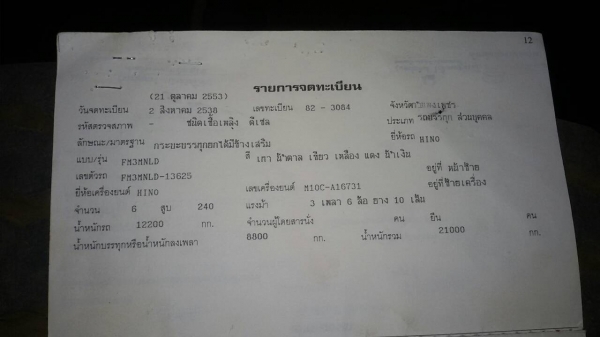 12
รายการจดทะเบียน
(21 ตุลาคม 2553)
วันจดทะเบียน 2 สิงหาคม 2538 เลขทะเบียน 82 - 3084 จังหวัด
รหัสตรวจสภาพ - ชนิดเชื้อเพลิง ดีเซล ประเภท รถบรรทุก ส่วนบุคคล
ลักษณะ/มาตรฐาน กระบะบรรทุกยกได้มีข้างเสริม ยี่ห้อรถ HINO
แบบ/รุ่น FM3MNLD สี เทา น้ำตาล เขียว เหลือง แดง น้ำเงิน
เลขตัวรถ FM3MNLD-13625 อยู่ที่
ยี่ห้อเครื่องยนต์ HINO เลขเครื่องยนต์ M10C-A16731 อยู่ที่ซ้ายเครื่อง
จำนวน 6 สูบ 240 แรงม้า 3 เพลา 6 ล้อ ยาง 10 เส้น
น้ำหนักรถ 12200 กก. จำนวนผู้โดยสารนั่ง คน ยืน คน
น้ำหนักบรรทุกหรือน้ำหนักลงเพลา 8800 กก. น้ำหนักรวม 21000 กก.